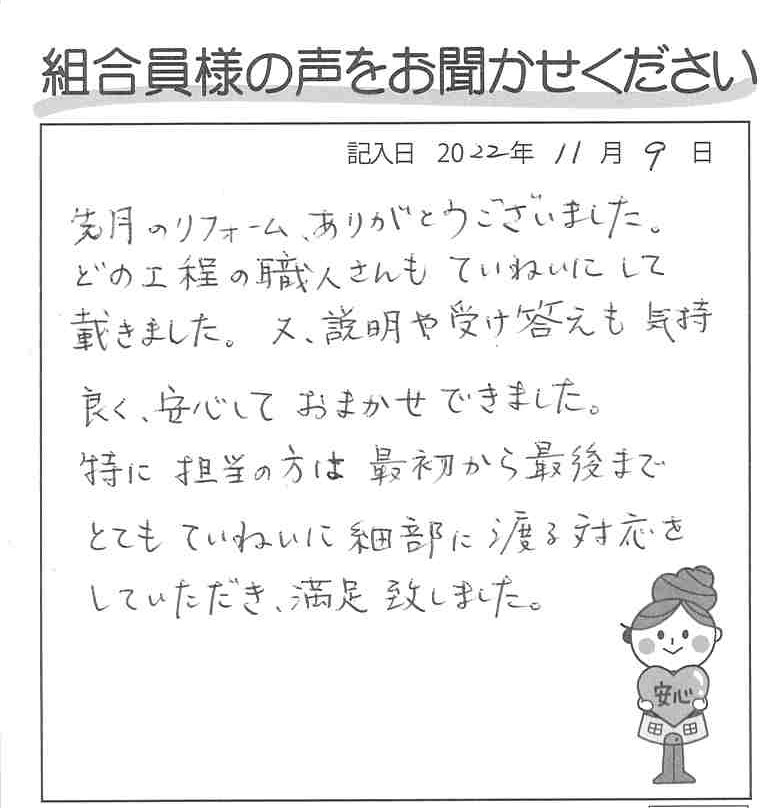 組合員様の声をお聞かせください
記入日 2022年 11月 9日
先月のリフォーム、ありがとうございました。
どの工程の職人さんも ていねいにして
載きました。又、説明や受け答えも 気持
良く、安心して おまかせできました。
特に 担当の方は 最初から最後まで
とても ていねいに 細部に渡る対応を
していただき、満足 致しました。
安心